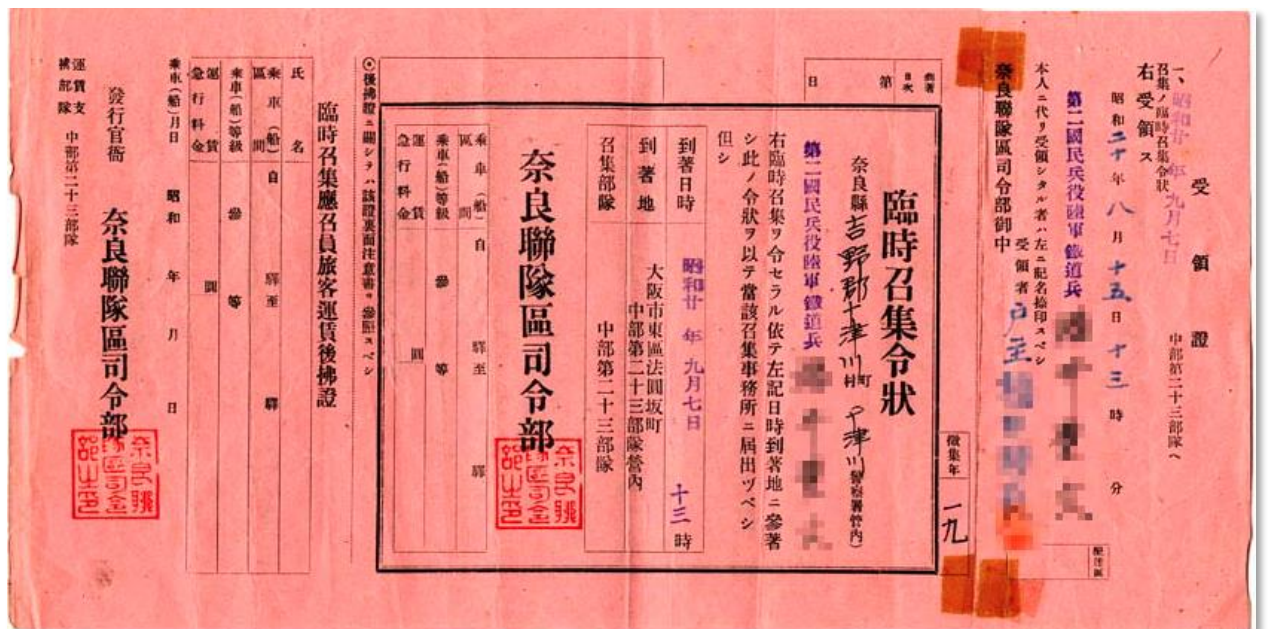 受領證
一、昭和廿年九月七日 中部第二十三部隊ヘ
召集ノ臨時召集令狀
右受領ス
昭和二十年八月十五日十三時 分
第二國民兵役陸軍鐵道兵
本人ニ代リ受領シタル者ハ左ニ記名捺印スベシ
受領者 戸主
奈良聯隊區司令部御中
配達區
徵集年 一九
臨時召集令狀
奈良縣吉野郡十津川村町 十津川警察署管內)
第二國民兵役陸軍鐵道兵
右臨時召集ヲ令セラル依テ左記日時到著地ニ參著
シ此ノ令狀ヲ以テ當該召集事務所ニ屆出ヅベシ
但シ
到著日時 昭和廿年九月七日 十三時
到著地 大阪市東區法圓坂町
中部第二十三部隊營內
召集部隊 中部第二十三部隊
奈良聯隊區司令部
乘車(船)區間 自 驛至 驛
乘車(船)等級 參等
運賃
急行料金 圓
第
日
◎後拂證ニ關シテハ該證裏面注意書ヲ參照スベシ
臨時召集應召員旅客運賃後拂證
氏名
乘車(船)區間 自 驛至 驛
乘車(船)等級 參等
運賃
急行料金 圓
乘車(船)月日 昭和 年 月 日
發行官衙 奈良聯隊區司令部
運賃支
中部第二十三部隊